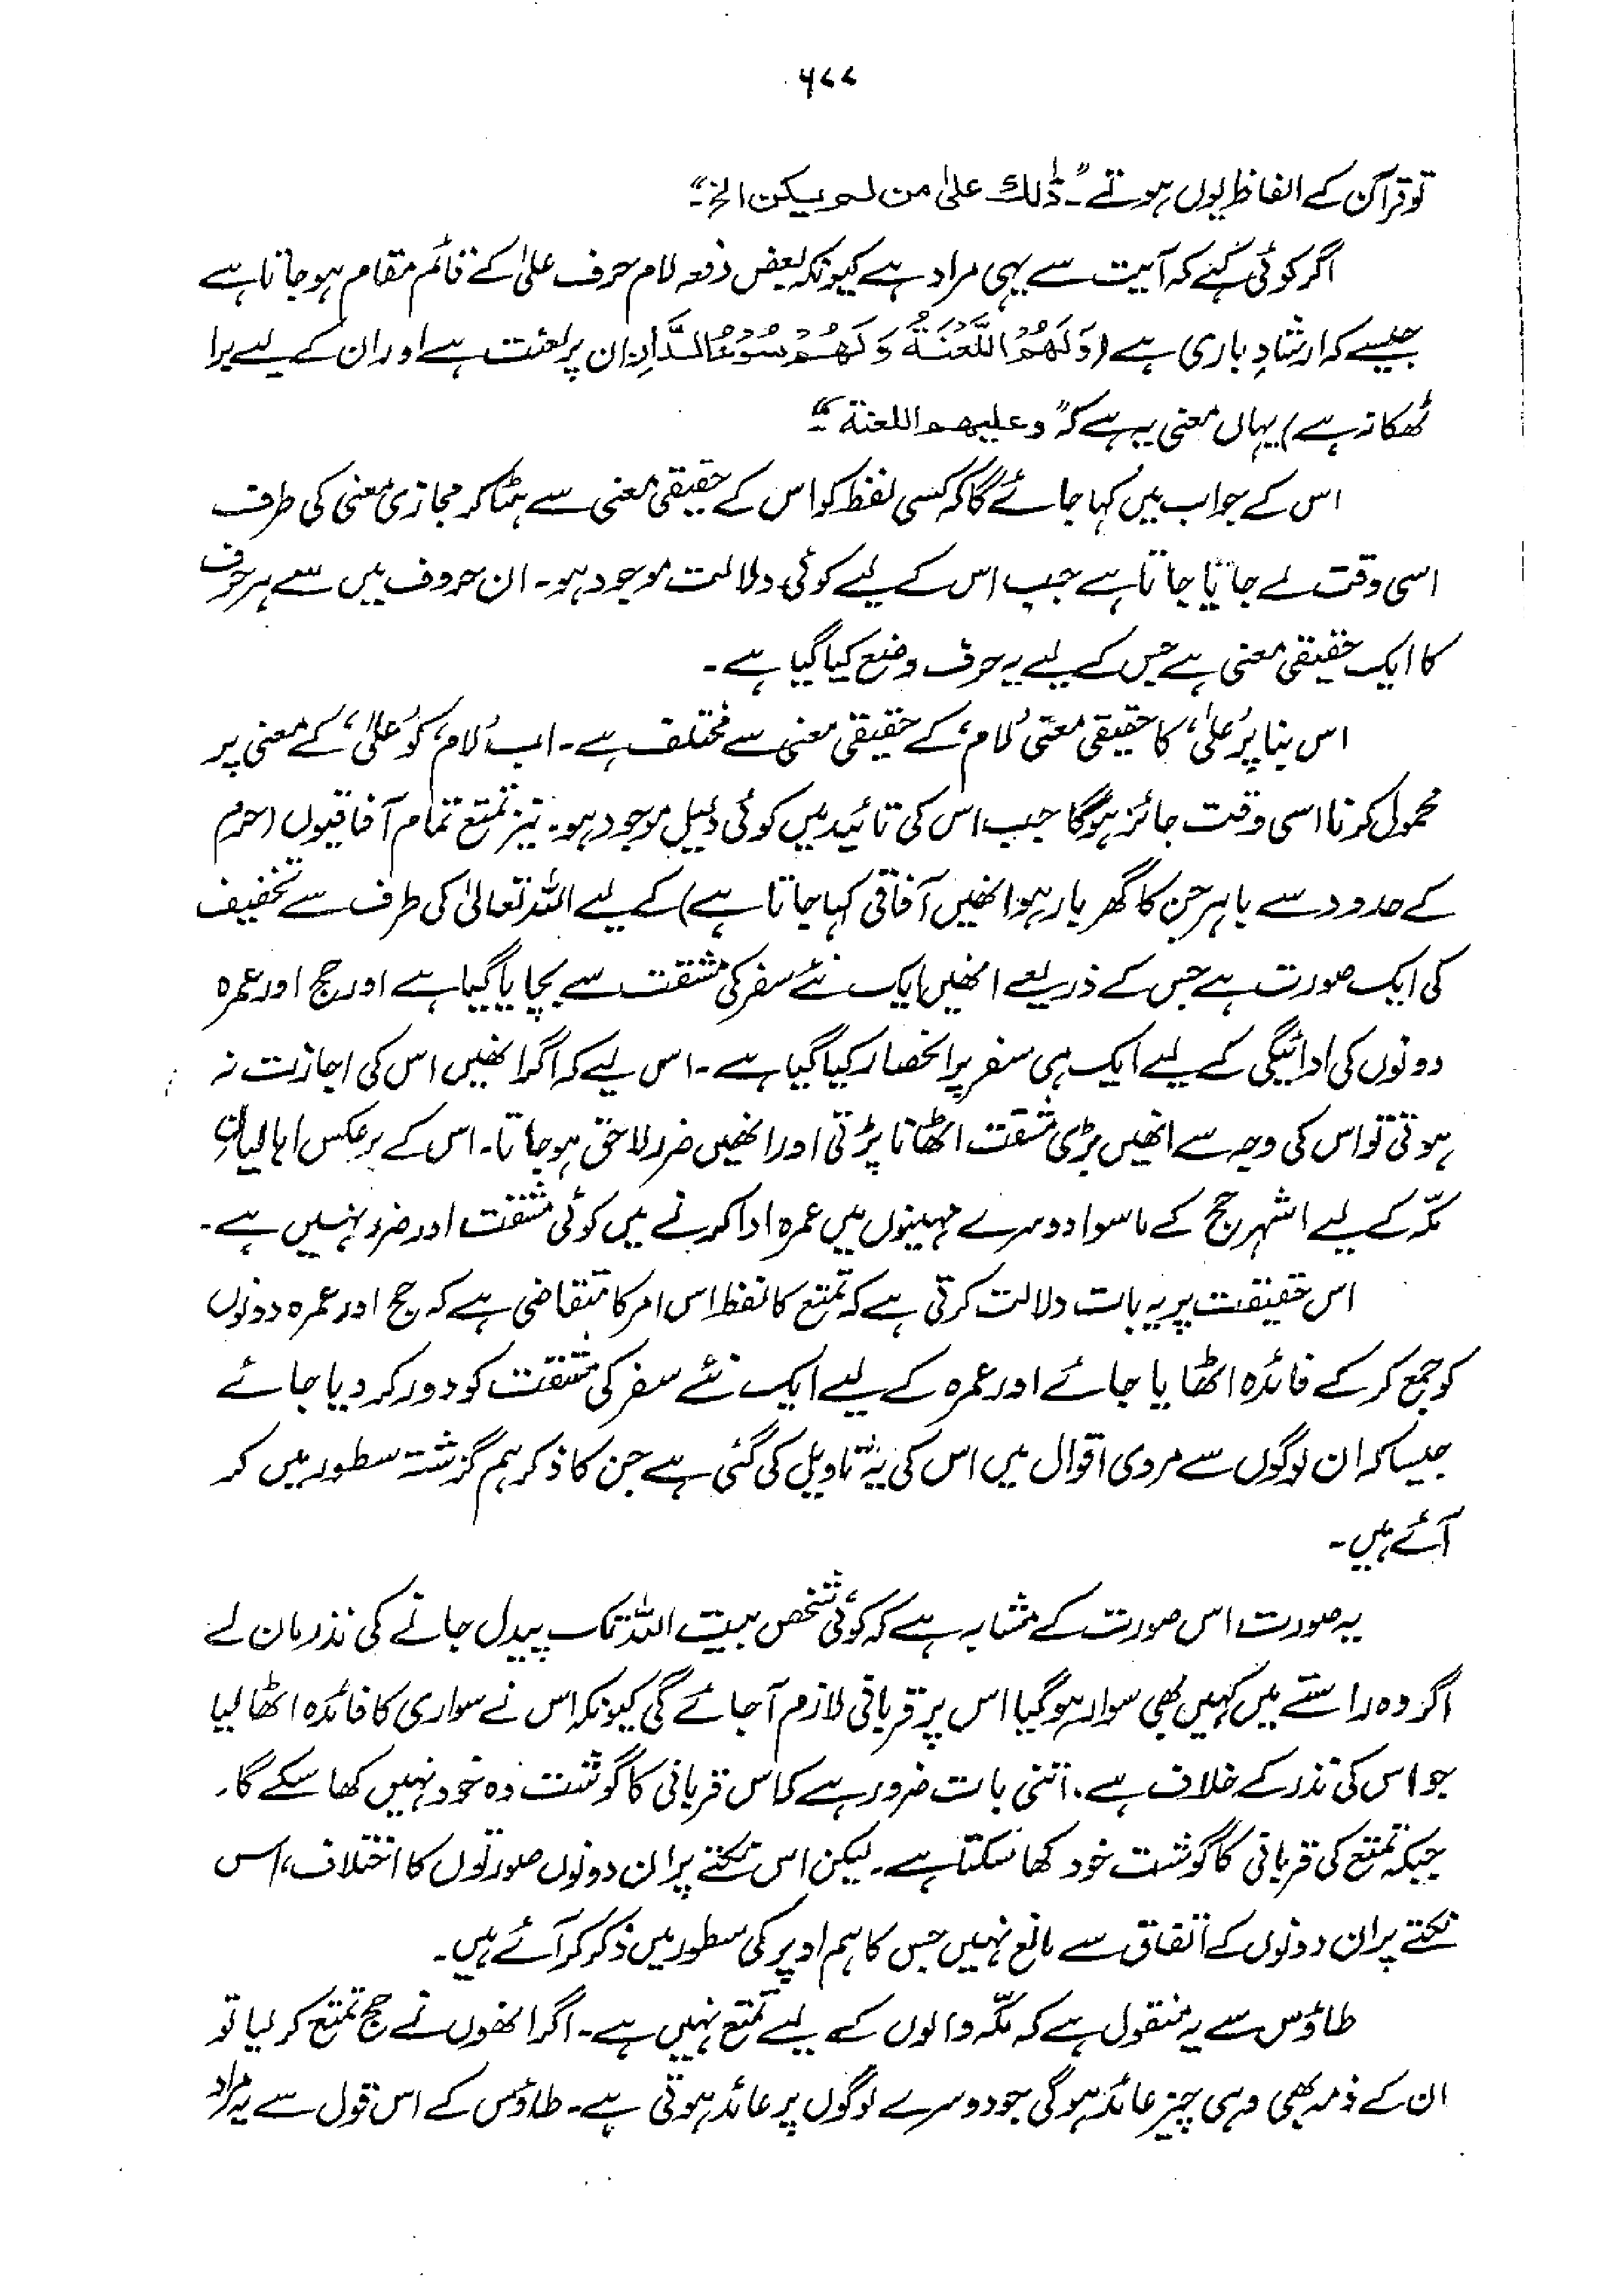 ۶۷۷
تو قرآن کے الفاظ یوں ہوتے "۔ ذٰلك علیٰ من لم يكن الخ"۔
اگر کوئی کہے کہ آیت سے یہی مراد ہے کیونکہ بعض دفعہ لام حرف علیٰ کے قائم مقام ہو جاتا ہے
جیسے کہ ارشادِ باری ہے (وَلَهُمُ اللَّعْنَةُ وَلَهُمْ سُوْءُ الدَّارِ ان پر لعنت ہے اور ان کے لیے برا
ٹھکانہ ہے) یہاں معنی یہ ہے کہ "وعليهم اللعنة"۔
اس کے جواب میں کہا جائے گا کہ کسی لفظ کو اس کے حقیقی معنی سے ہٹا کر مجازی معنی کی طرف
اسی وقت لے جایا جاتا ہے جب اس کے لیے کوئی دلالت موجود ہو۔ ان حروف میں سے ہر حرف
کا ایک حقیقی معنی ہے جس کے لیے یہ حرف وضع کیا گیا ہے۔
اس بنا پر 'علیٰ' کا حقیقی معنی 'لام' کے حقیقی معنی سے مختلف ہے۔ اب 'لام' کو 'علیٰ' کے معنی پر
محمول کرنا اسی وقت جائز ہوگا جب اس کی تائید میں کوئی دلیل موجود ہو۔ نیز تمتع تمام آفاقیوں (حرم
کے حدود سے باہر جن کا گھر بار ہو انھیں آفاقی کہا جاتا ہے) کے لیے اللہ تعالیٰ کی طرف سے تخفیف
کی ایک صورت ہے جس کے ذریعے انھیں ایک نئے سفر کی مشقت سے بچایا گیا ہے اور حج اور عمرہ
دونوں کی ادائیگی کے لیے ایک ہی سفر پر انحصار کیا گیا ہے۔ اس لیے کہ اگر انھیں اس کی اجازت نہ
ہوتی تو اس کی وجہ سے انھیں بڑی مشقت اٹھانا پڑتی اور انھیں ضرر لاحق ہو جاتا۔ اس کے برعکس اہالیانِ
مکّہ کے لیے اشہر حج کے ماسوا دوسرے مہینوں میں عمرہ ادا کرنے میں کوئی مشقت اور ضرر نہیں ہے۔
اس حقیقت پر یہ بات دلالت کرتی ہے کہ تمتع کا لفظ اس امر کا متقاضی ہے کہ حج اور عمرہ دونوں
کو جمع کر کے فائدہ اٹھایا جائے اور عمرہ کے لیے ایک نئے سفر کی مشقت کو دور کر دیا جائے
جیسا کہ ان لوگوں سے مروی اقوال میں اس کی یہ تاویل کی گئی ہے جن کا ذکر ہم گزشتہ سطور میں کر
آئے ہیں۔
یہ صورت اس صورت کے مشابہ ہے کہ کوئی شخص بیت اللہ تک پیدل جانے کی نذر مان لے
اگر وہ راستے میں کہیں بھی سوار ہو گیا اس پر قربانی لازم آ جائے گی کیونکہ اس نے سواری کا فائدہ اٹھا لیا
جو اس کی نذر کے خلاف ہے۔ اتنی بات ضرور ہے کہ اس قربانی کا گوشت وہ خود نہیں کھا سکے گا۔
جبکہ تمتع کی قربانی کا گوشت خود کھا سکتا ہے۔ لیکن اس نکتے پر ان دونوں صورتوں کا اختلاف، اس
نکتے پر ان دونوں کے اتفاق سے مانع نہیں جس کا ہم اوپر کی سطور میں ذکر کر آئے ہیں۔
طاؤس سے یہ منقول ہے کہ مکّہ والوں کے لیے تمتع نہیں ہے۔ اگر انھوں نے حج تمتع کر لیا تو
ان کے ذمہ بھی وہی چیز عائد ہو گی جو دوسرے لوگوں پر عائد ہوتی ہے۔ طاؤس کے اس قول سے یہ مراد